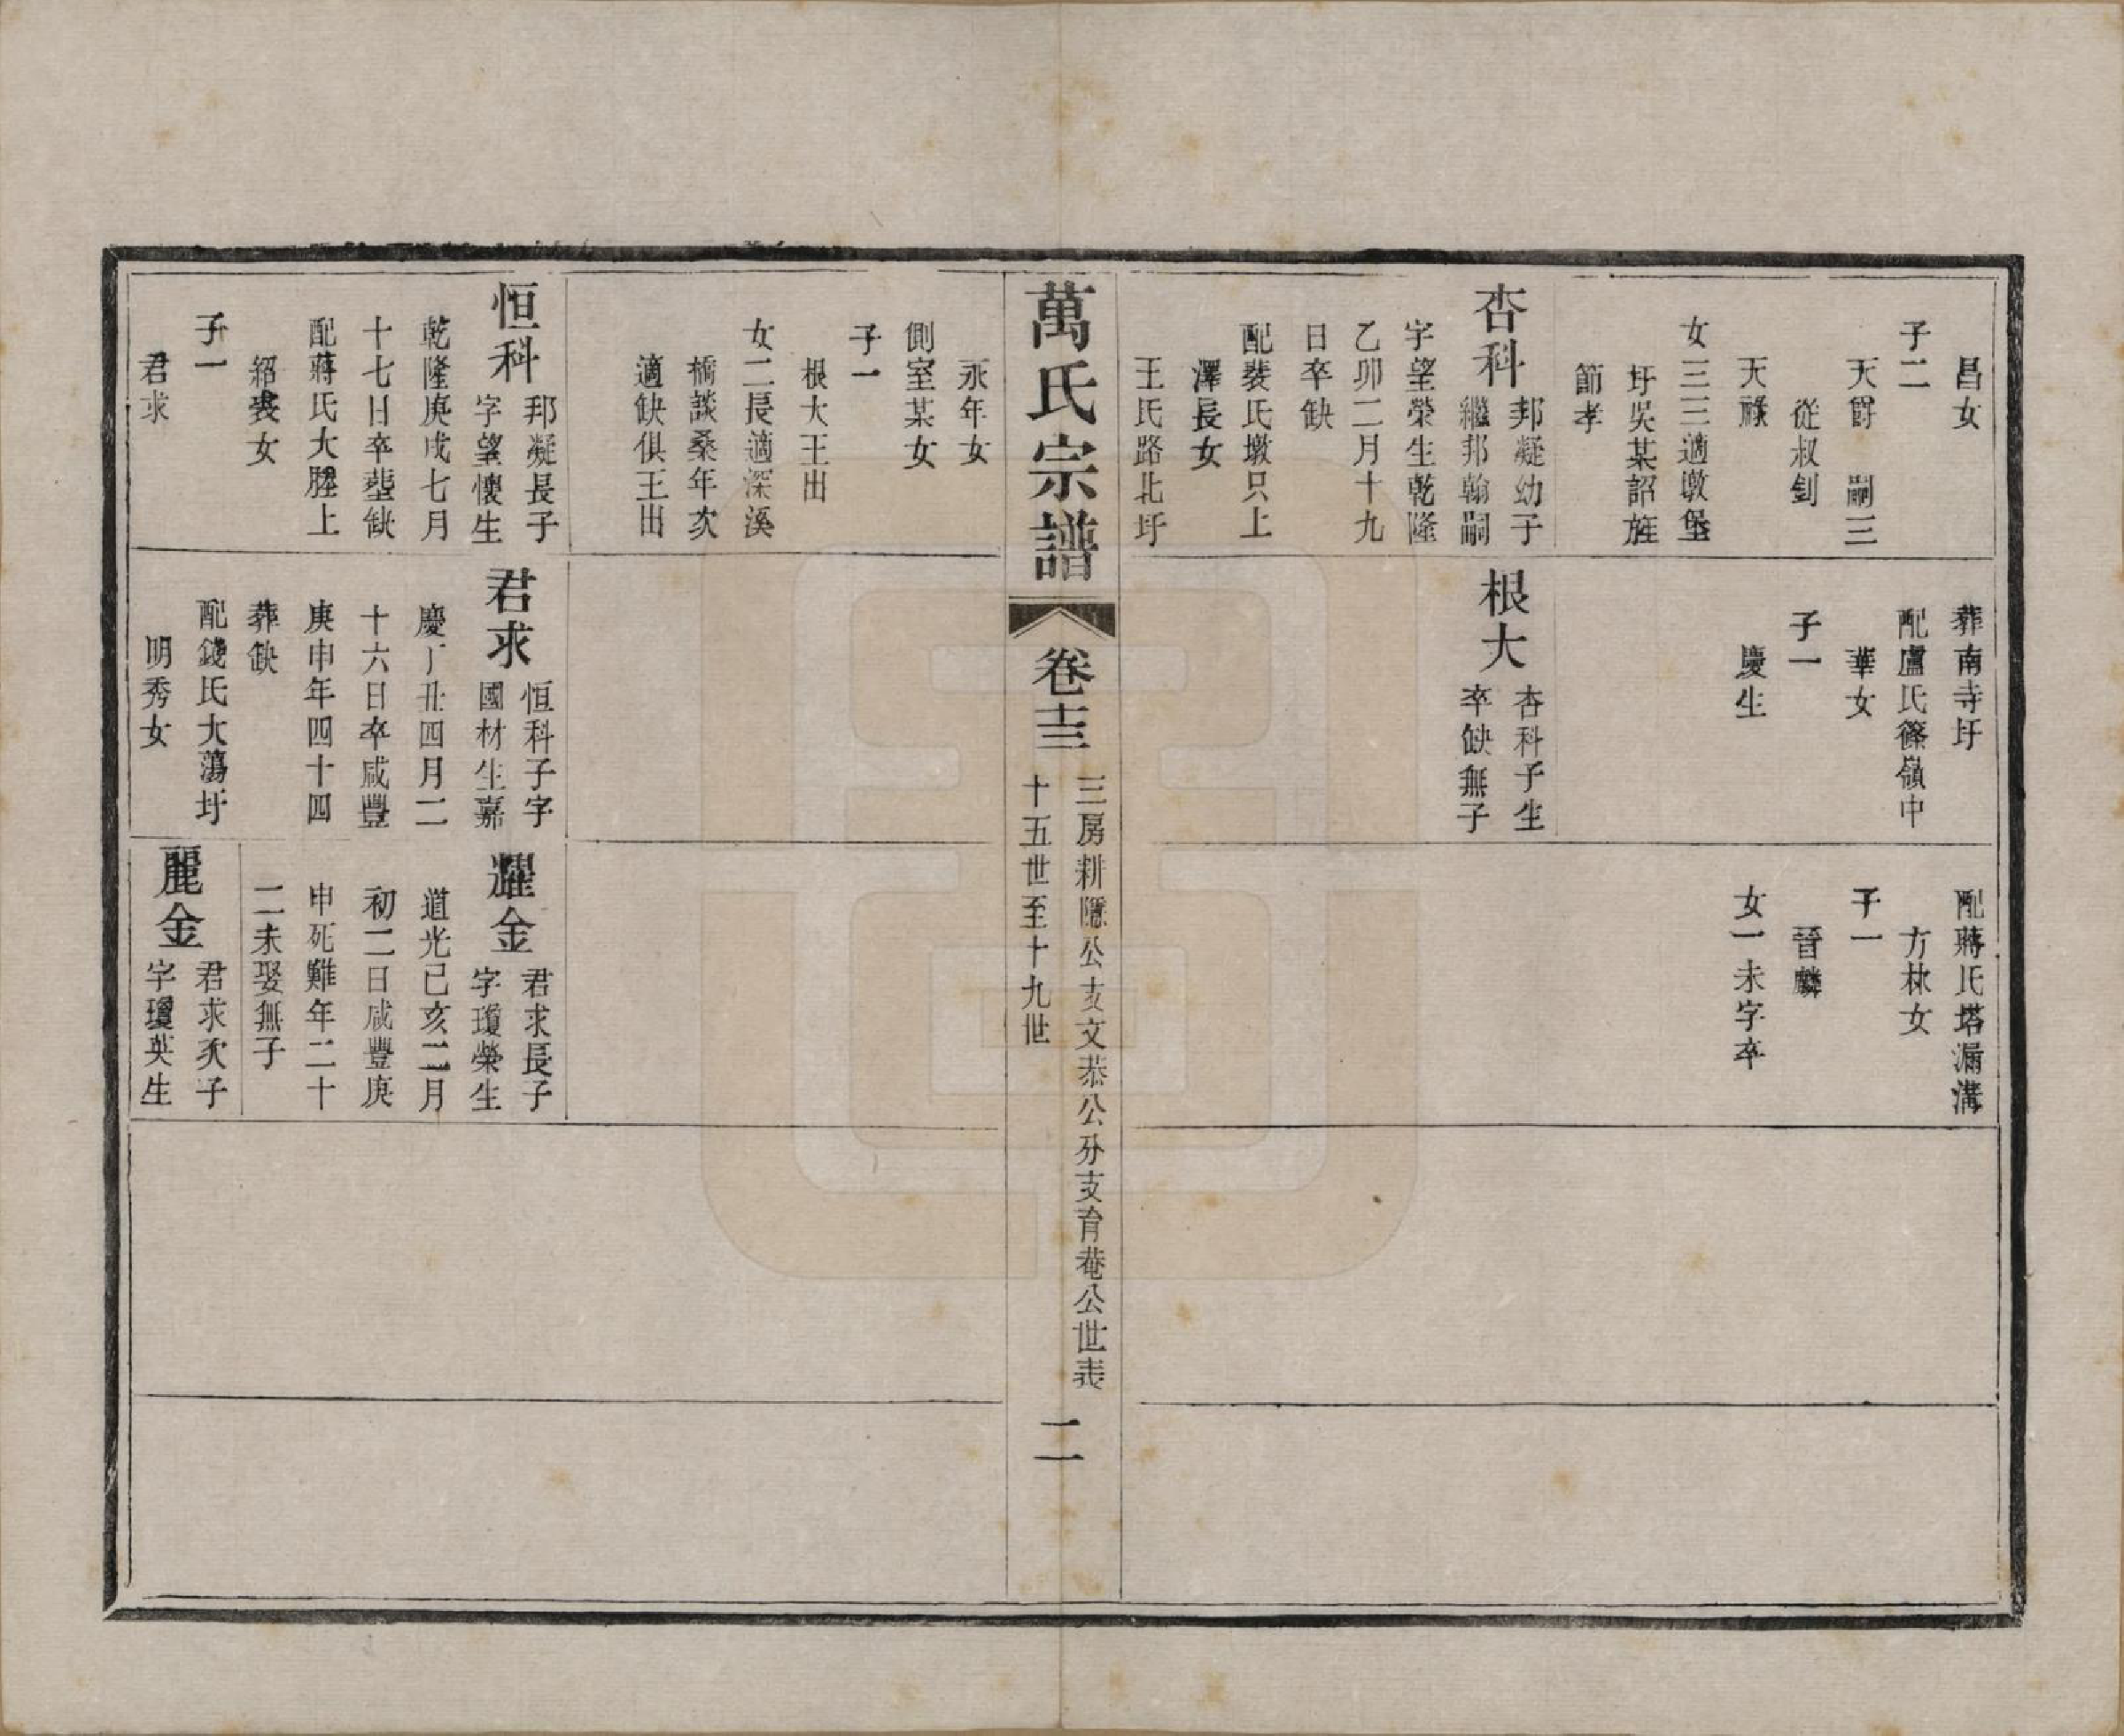 昌女
子二
天爵　嗣三
從叔釗
天祿
女三三適墩堡
圩吳某詔旌
節孝
杏科
邦凝幼子
繼邦翰嗣
字望榮生乾隆
乙卯二月十九
日卒缺
配裴氏墩只上
澤長女
王氏路北圩
葬南寺圩
配盧氏篠嶺中
華女
子一
慶生
根大
杏科子生
卒缺無子
配蔣氏塔漏溝
方林女
子一
晉麟
女一未字卒
萬氏宗譜
卷十三
三房耕隱公支文恭公分支育菴公世表
十五世至十九世
二
永年女
側室某女
子一
根大王出
女二長適深溪
橋談桑年次
適缺俱王出
恒科
邦凝長子
字望懷生
乾隆庚戌七月
十七日卒塟缺
配蔣氏大塍上
紹裘女
子一
君求
君求
恒科子字
國材生嘉
慶丁丑四月二
十六日卒咸豐
庚申年四十四
葬缺
配錢氏大蕩圩
明秀女
耀金
君求長子
字瓊榮生
道光己亥二月
初二日咸豐庚
申死難年二十
二未娶無子
麗金
君求次子
字瓊英生